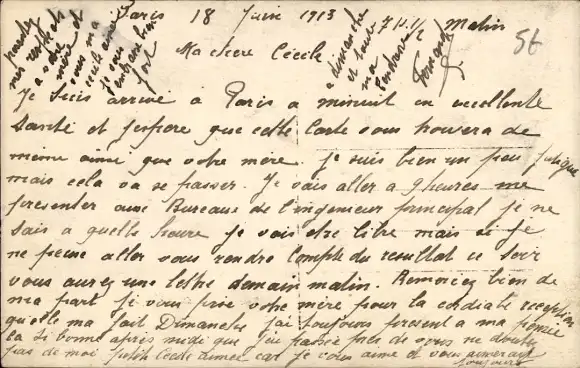 Paris 18 Juin 1913 7 H 1/2 Matin
56
Ma chere Cécile
Je suis arrivé à Paris a minuit en excellente
santé et j'espere que cette carte vous trouvera de
même ainsi que votre mère. je suis bien un peu fatigué
mais cela va se passer. Je vais aller a 9 heures me
presenter aux Bureaux de l'ingenieur principal je ne
sais a quelle heure je vais etre libre mais si je
ne peux aller vous rendre compte du resultat ce soir
vous aurez une lettre demain matin. Remerciez bien de
ma part je vous prie votre mère pour la cordiale reception
qu'elle ma fait Dimanche j'ai toujours present a ma pensée
la si bonne après midi que j'ai passée près de vous ne doutez
pas de moi petite Cecile aimée car je vous aime et vous aimerait
toujours
mes respects
a votre
mère et
vous ma
Cecile aimée
je vous
embrasse bien
fort
a dimanche
et toute
ma
tendresse
Fernand